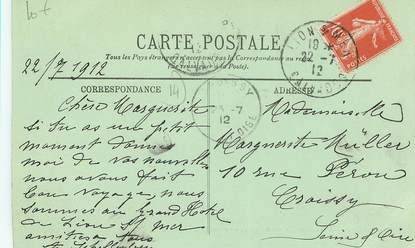 CARTE POSTALE
Tous les Pays étrangers n'acceptent pas la Correspondance au recto
(se renseigner à la Poste).
22/7 1912
CORRESPONDANCE
ADRESSE
LION S/MER
19
22-7
12
-7
12
Chère Marguerite
Si tu as un petit
moment donne
moi de vos nouvelles
nous avons fait
bon voyage, nous
sommes au Grand Hotel
de Lion S/ mer
amitiés à tous
Mademoiselle
Marguerite Müller
10 rue Péron
Croissy
Seine & Oise